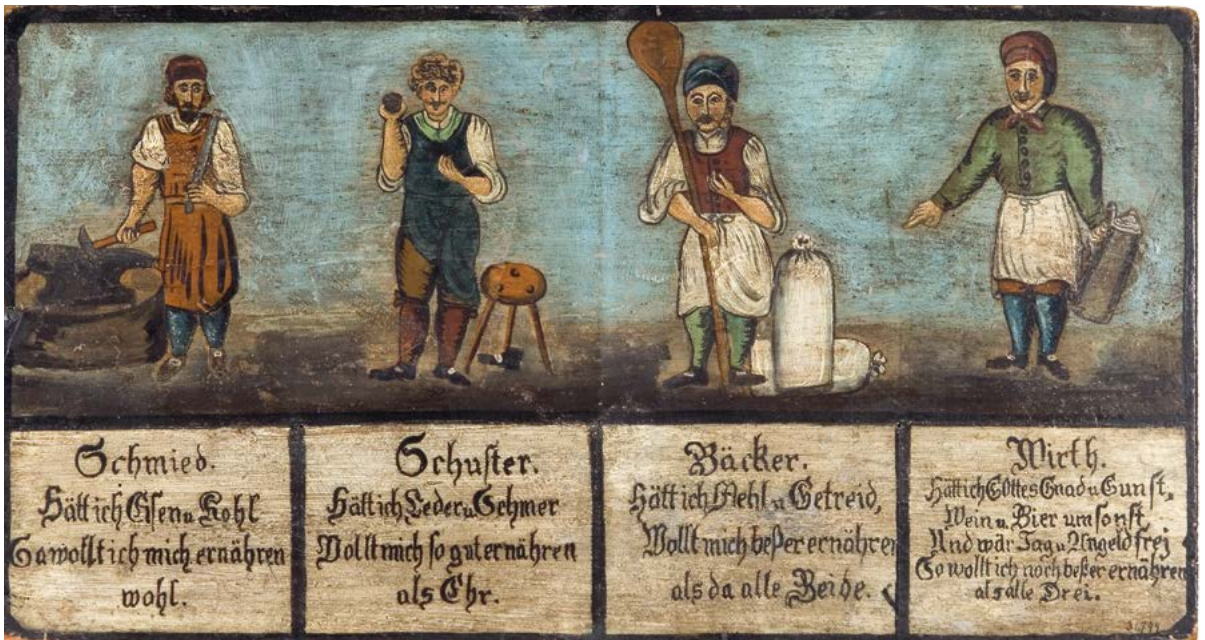 Schmied.
Hätt ich Eisen u Kohl
So wollt ich mich ernähren
wohl.
Schuster.
Hätt ich Leder u Schmer
Wollt mich so gut ernähren
als Ehr.
Bäcker.
Hätt ich Mehl u Getreid,
Wollt mich beßer ernähren
als da alle Beide.
Wirth.
Hätt ich Gottes Gnad u Gunst,
Wein u. Bier umsonst
Und wär Tag u Ungeld frej
So wollt ich noch beßer ernähren
als alle Drei.